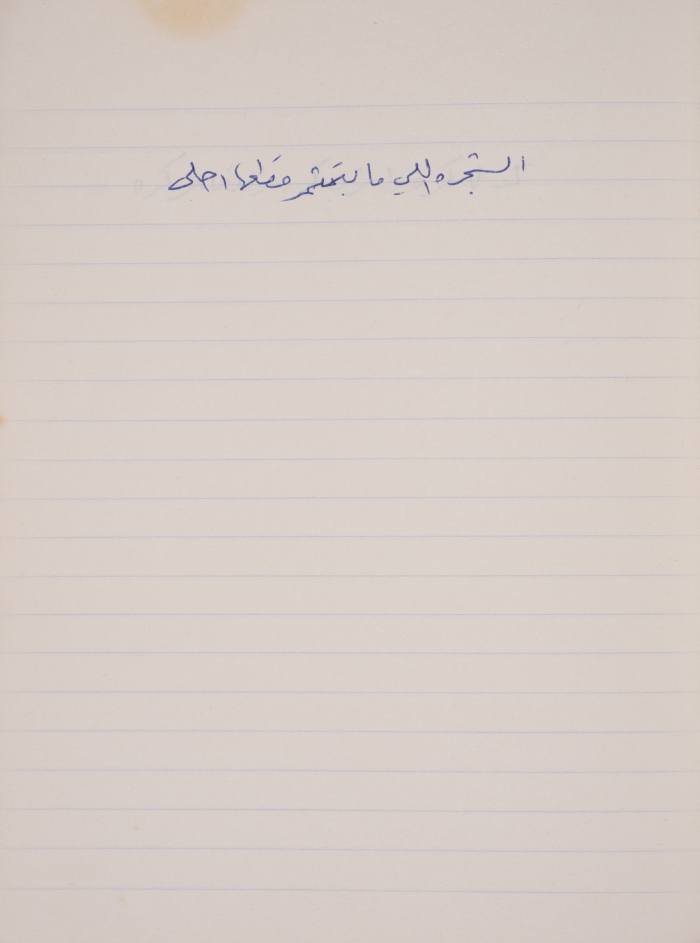 الشجره اللي ما بتمثمر قطعها احلى